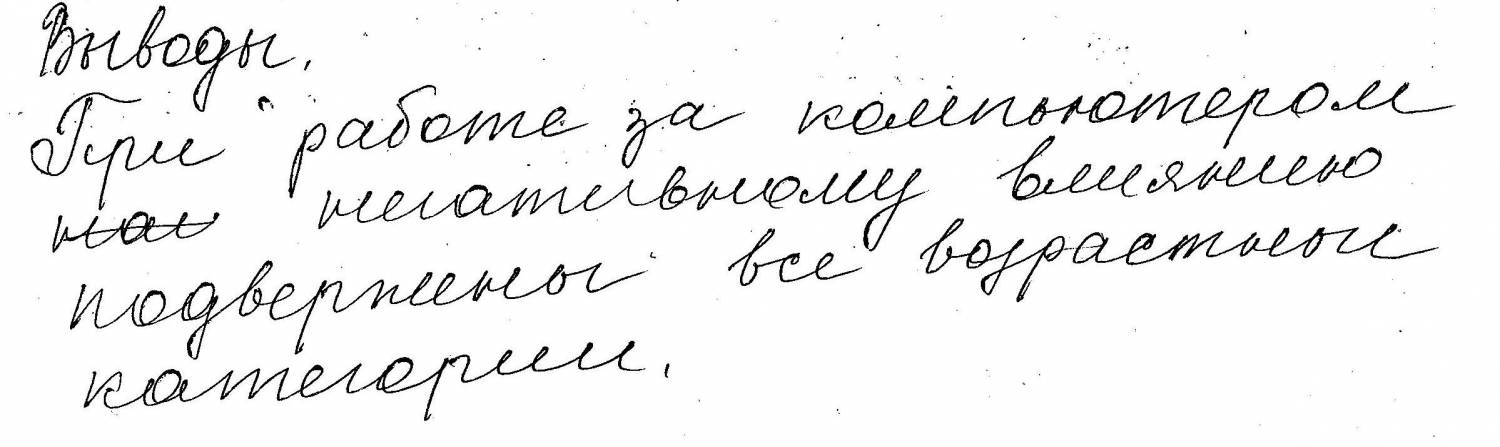 Выводы.
При работе за компьютером
негативному влиянию
подвержены все возрастные
категории.